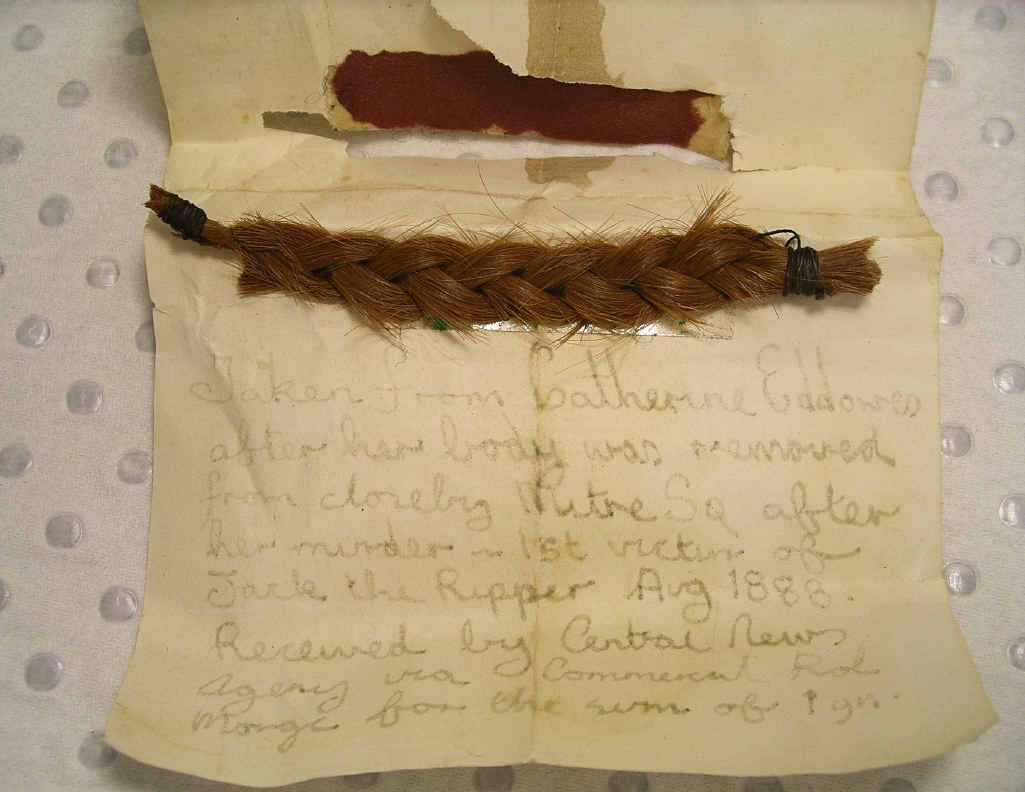 Taken from Catherine Eddowes
after her body was removed
from closeby Mitre Sq after
her murder - 1st victim of
Jack the Ripper Aug 1888.
Received by Central News
Agency via Commercial Rd
Morge for the sum of 1 gn.